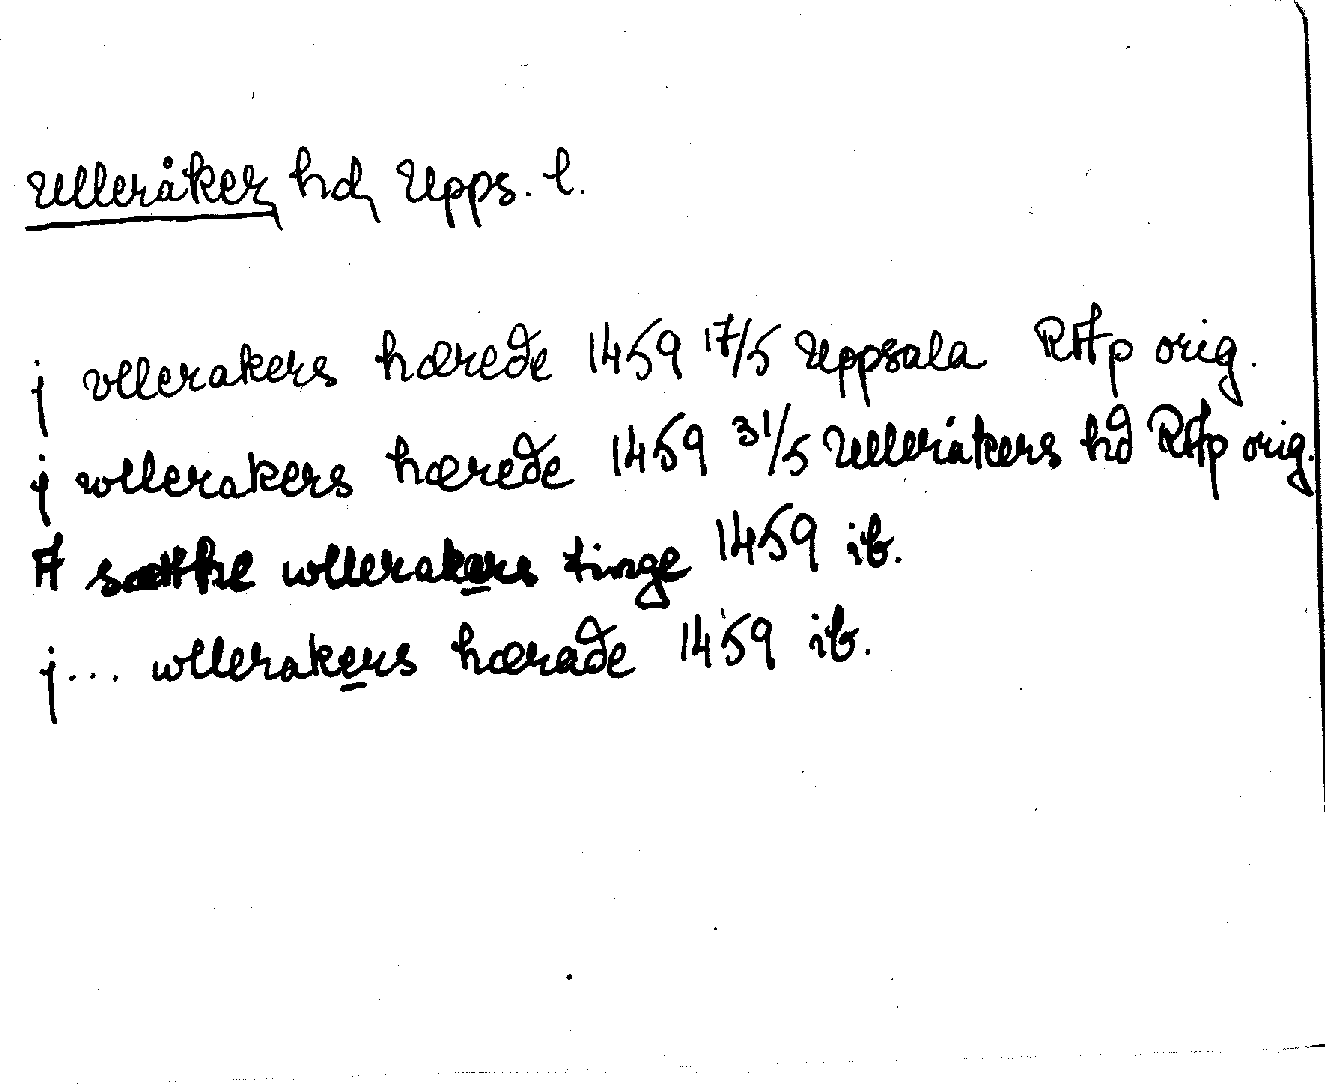 Ulleråker, hd, Upps. l.
j vllerakers hærede 1459 17/5 Uppsala RAp orig.
j wllerakers hærede 1459 31/5 Ulleråkers hd RAp orig.
A wllerakers tinge 1459 ib.
j... wllerakers hærade 1459 ib.